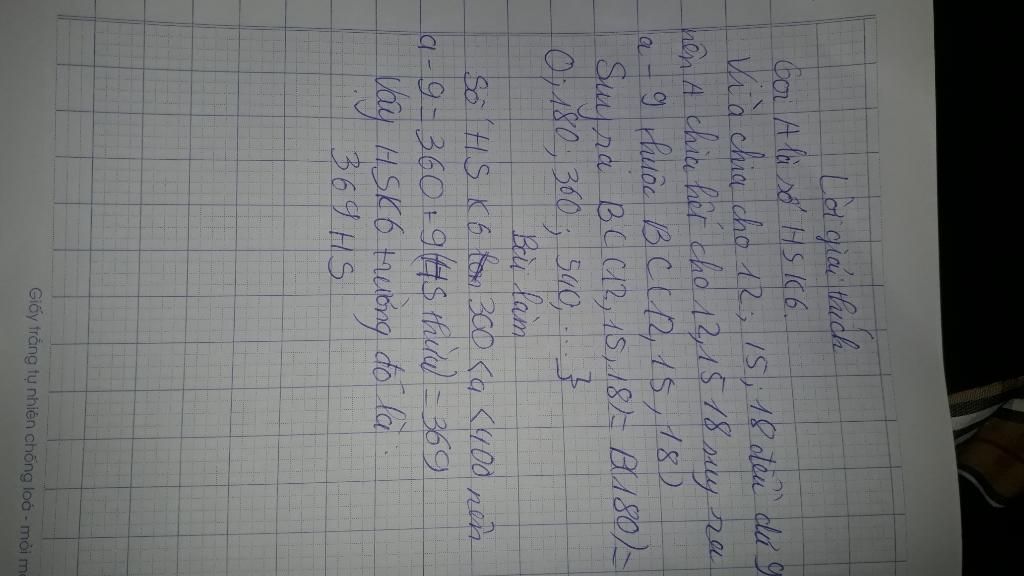 Lời giải thích
Gọi A là số HS K6
Vì a chia cho 12; 15; 18 đều dư 9
nên A chia hết cho 12, 15 18 suy ra
a - 9 thuộc BC(12, 15, 18)
Suy ra BC(12, 15, 18) = B(180) =
0; 180; 360; 540; ... }
Bài làm
Số HS K6 300 < a < 400 nên
a - 9 = 360 + 9 (HS thừa) = 369
Vậy HSK6 trường đó là:
369 HS
Giấy trắng tự nhiên chống loá - mỏi m